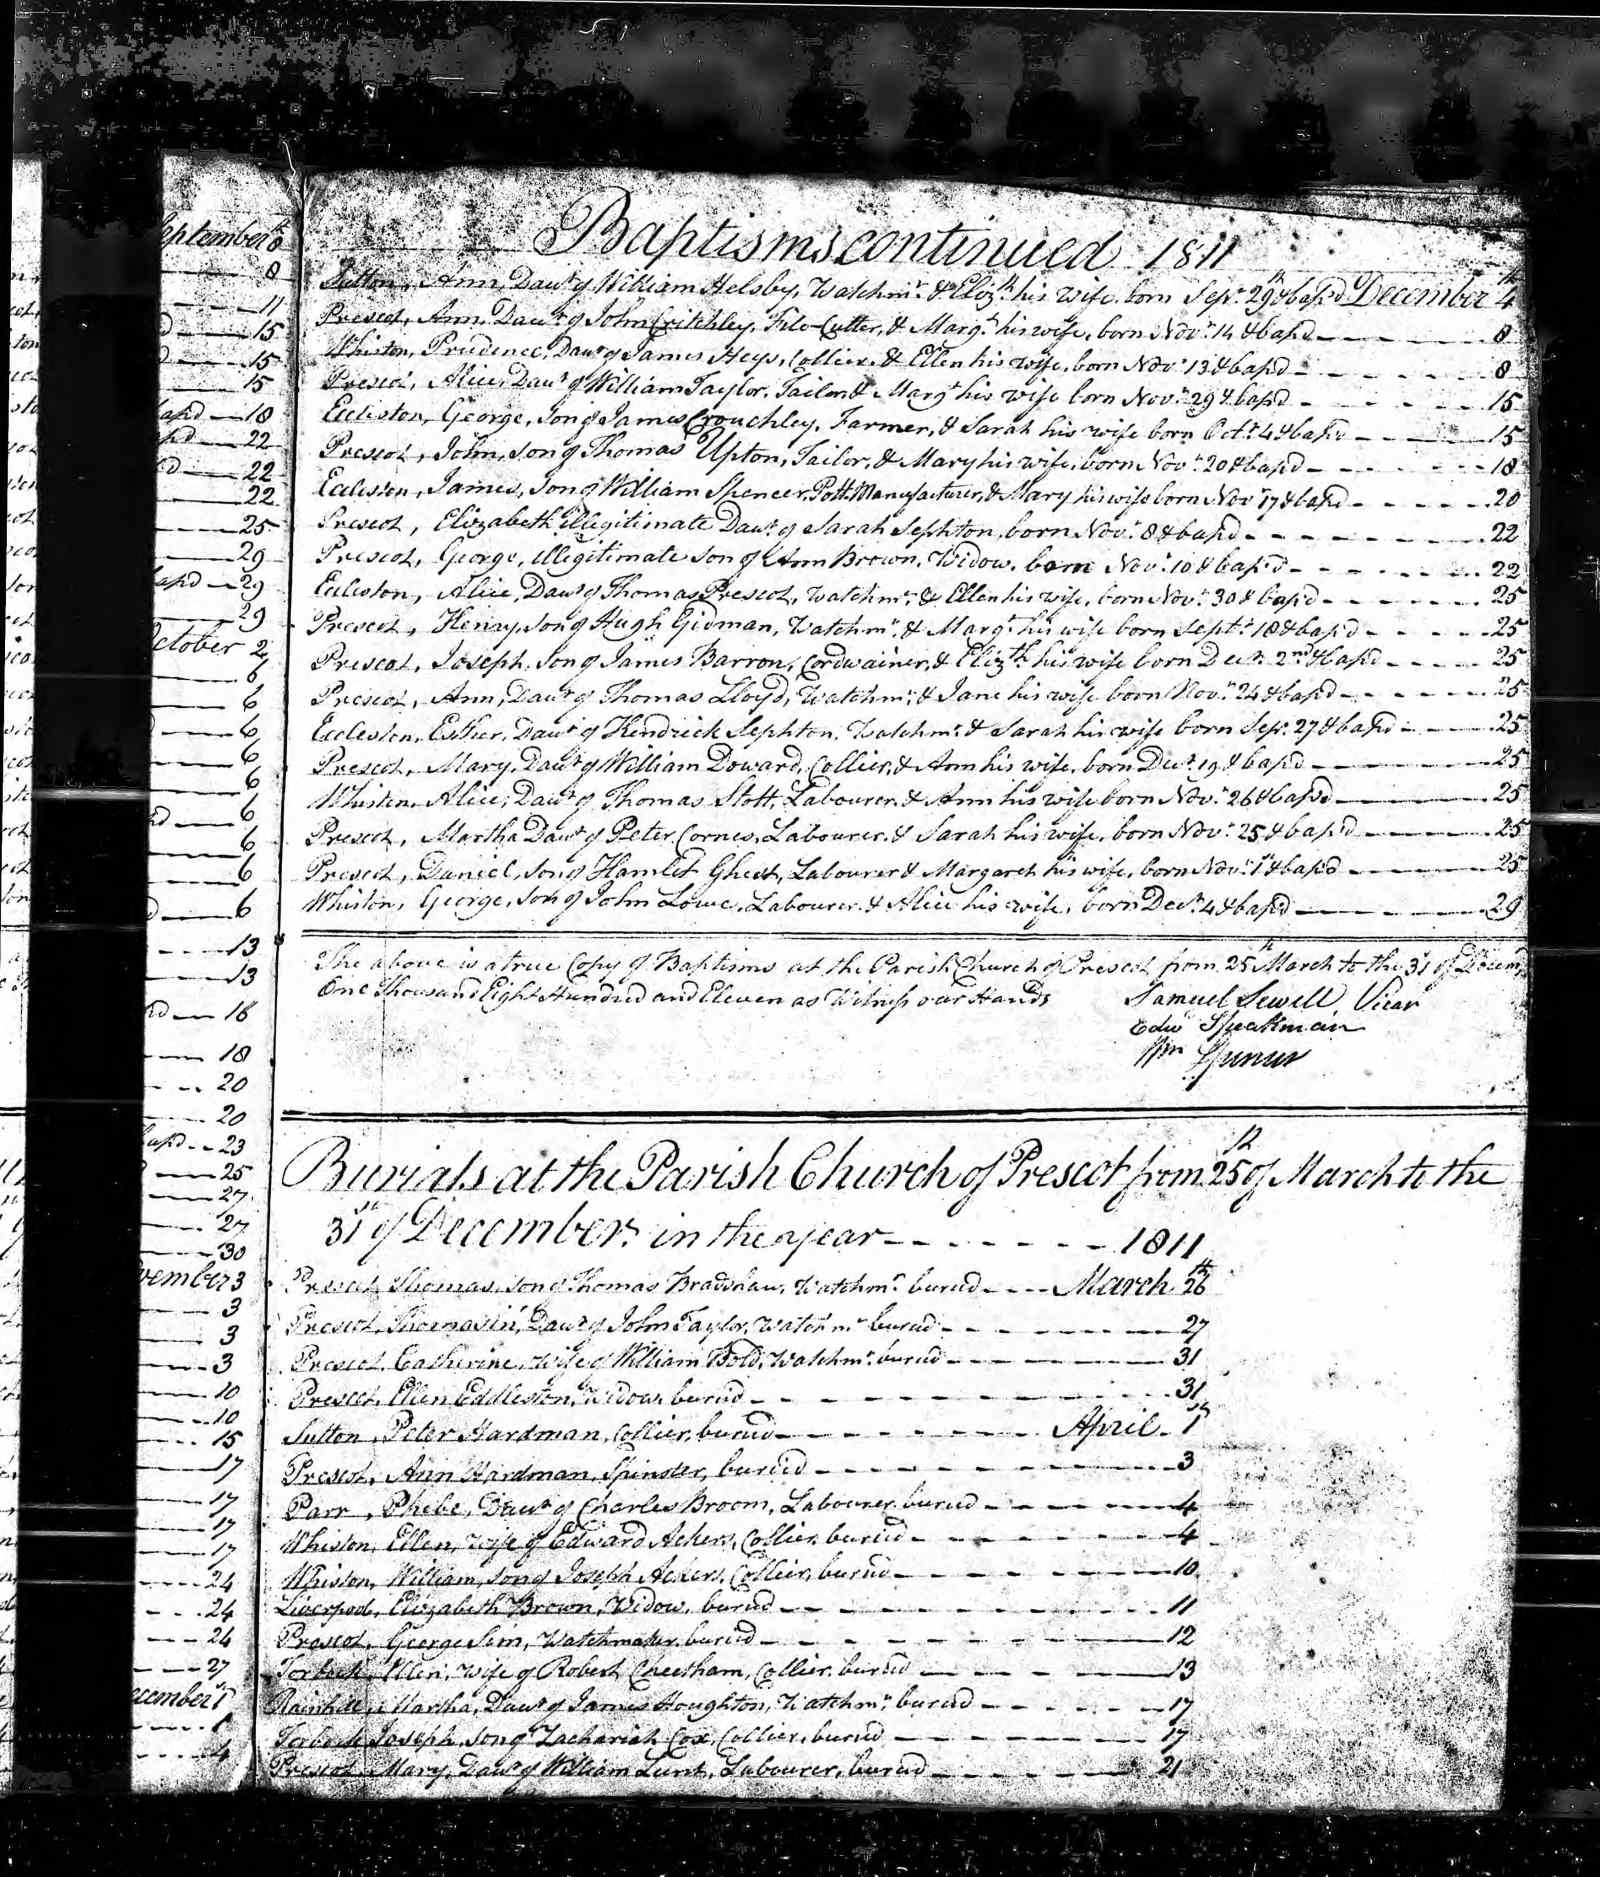 Baptisms continued 1811
Sutton, Ann, Daur. of William Helsby, Watchmr. & Elizth. his wife, born Sepr. 29th & bapd December 4th
Prescot, Ann, Daur. of John Critchley, File-Cutter, & Margt. his wife, born Novr. 14 & bapd 8
Whiston, Prudence, Daur. of James Heys, Collier, & Ellen his wife, born Novr. 13 & bapd 8
Prescot, Alice, Daur. of William Taylor, Tailor & Margt. his wife born Novr. 29 & bapd 15
Eccleston, George, Son of James Crouchley, Farmer, & Sarah his wife born Octr. 4 & bapd 15
Prescot, John, son of Thomas Upton, Tailor, & Mary his wife, born Novr. 20 & bapd 18
Eccleston, James, Son of William Spencer, Pott Manufacturer, & Mary his wife born Novr. 17 & bapd 20
Prescot, Elizabeth illegitimate Daur. of Sarah Sephton, born Novr. 8 & bapd 22
Prescot, George, illegitimate son of Ann Brown, Widow, born Novr. 10 & bapd 22
Eccleston, Alice, Daur. of Thomas Prescot, Watchmr. & Ellen his wife, born Novr. 30 & bapd 25
Prescot, Henry, Son of Hugh Gidman, Watchmr. & Margt. his wife born Septr. 18 & bapd 25
Prescot, Joseph, Son of James Barron, Cordwainer, & Elizth. his wife born Decr. 2nd & bapd 25
Prescot, Ann, Daur. of Thomas Lloyd, Watchmr. & Jane his wife born Novr. 24 & bapd 25
Eccleston, Esther, Daur. of Kendrick Sephton, Watchmr. & Sarah his wife born Sepr. 27 & bapd 25
Prescot, Mary, Daur. of William Doward, Collier, & Ann his wife, born Decr. 19 & bapd 25
Whiston, Alice, Daur. of Thomas Stott, Labourer & Ann his wife born Novr. 26 & bapd 25
Prescot, Martha Daur. of Peter Cornes, Labourer, & Sarah his wife, born Novr. 25 & bapd 25
Prescot, Daniel, Son of Hamlet Ghest, Labourer & Margaret his wife, born Novr. 1st & bapd 25
Whiston, George, Son of John Lowe, Labourer, & Alice his wife, born Decr. 4 & bapd 29
The above is a true Copy of Baptisms at the Parish Church of Prescot from 25th March to the 31 of Decem
One Thousand Eight Hundred and Eleven as Witness our Hands
Samuel Sewell, Vicar
Edwd Speakman
Wm
Burials at the Parish Church of Prescot from 25th of March to the
31st of December in the year 1811
Prescot, Thomas, son of Thomas Bradshaw, Watchmr. buried March 26th
Prescot, Thomasin, Daur. of John Taylor, Watchmr. buried 27
Prescot, Catherine, wife of William Bold, Watchmr. buried 31
Prescot, Ellen Eddleston, Widow, buried 31
Sutton, Peter Hardman, Collier, buried April 1st
Prescot, Ann Hardman, Spinster, buried 3
Parr, Phebe, Daur. of Charles Broom, Labourer, buried 4
Whiston, Ellen, wife of Edward Ackers, Collier, buried 4
Whiston, William, son of Joseph Ackers, Collier, buried 10
Liverpool, Elizabeth Brown, Widow, buried 11
Prescot, George Sim, Watchmaker, buried 12
Torbock, Ellen, wife of Robert Cheetham, Collier, buried 13
Rainhill, Martha, Daur. of James Houghton, Watchmr. buried 17
Torbock Joseph, son of Zachariah Cox, Collier, buried 17
Prescot, Mary, Daur. of William Lunt, Labourer, buried 21